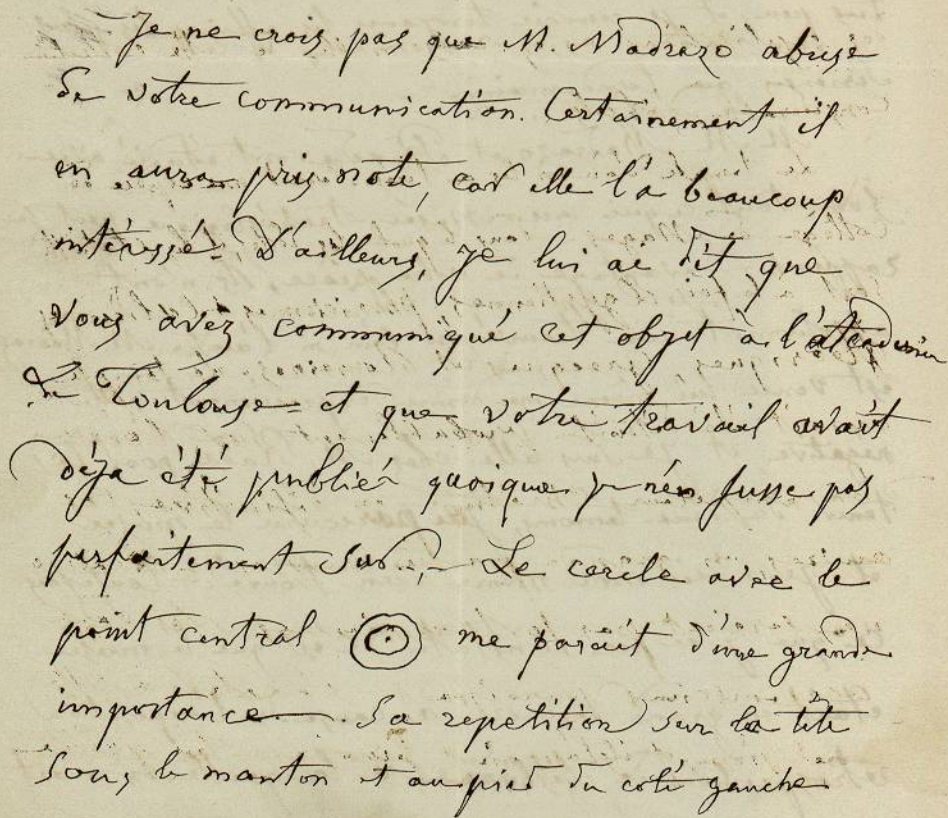 Je ne crois pas que M. Madrazo abuse
de votre communication. Certainement il
en aura pris note, car elle l'a beaucoup
intéressé. D'ailleurs, je lui ai dit que
vous avez communiqué cet objet à l'Academie
de Toulouse et que votre travail avait
déja été publié quoique je n'en fusse pas
parfaitement sur. - Le cercle avec le
point central me parait d'une grande
importance. Sa repetition sur la tête
sous le manton et au pied du coté gauche